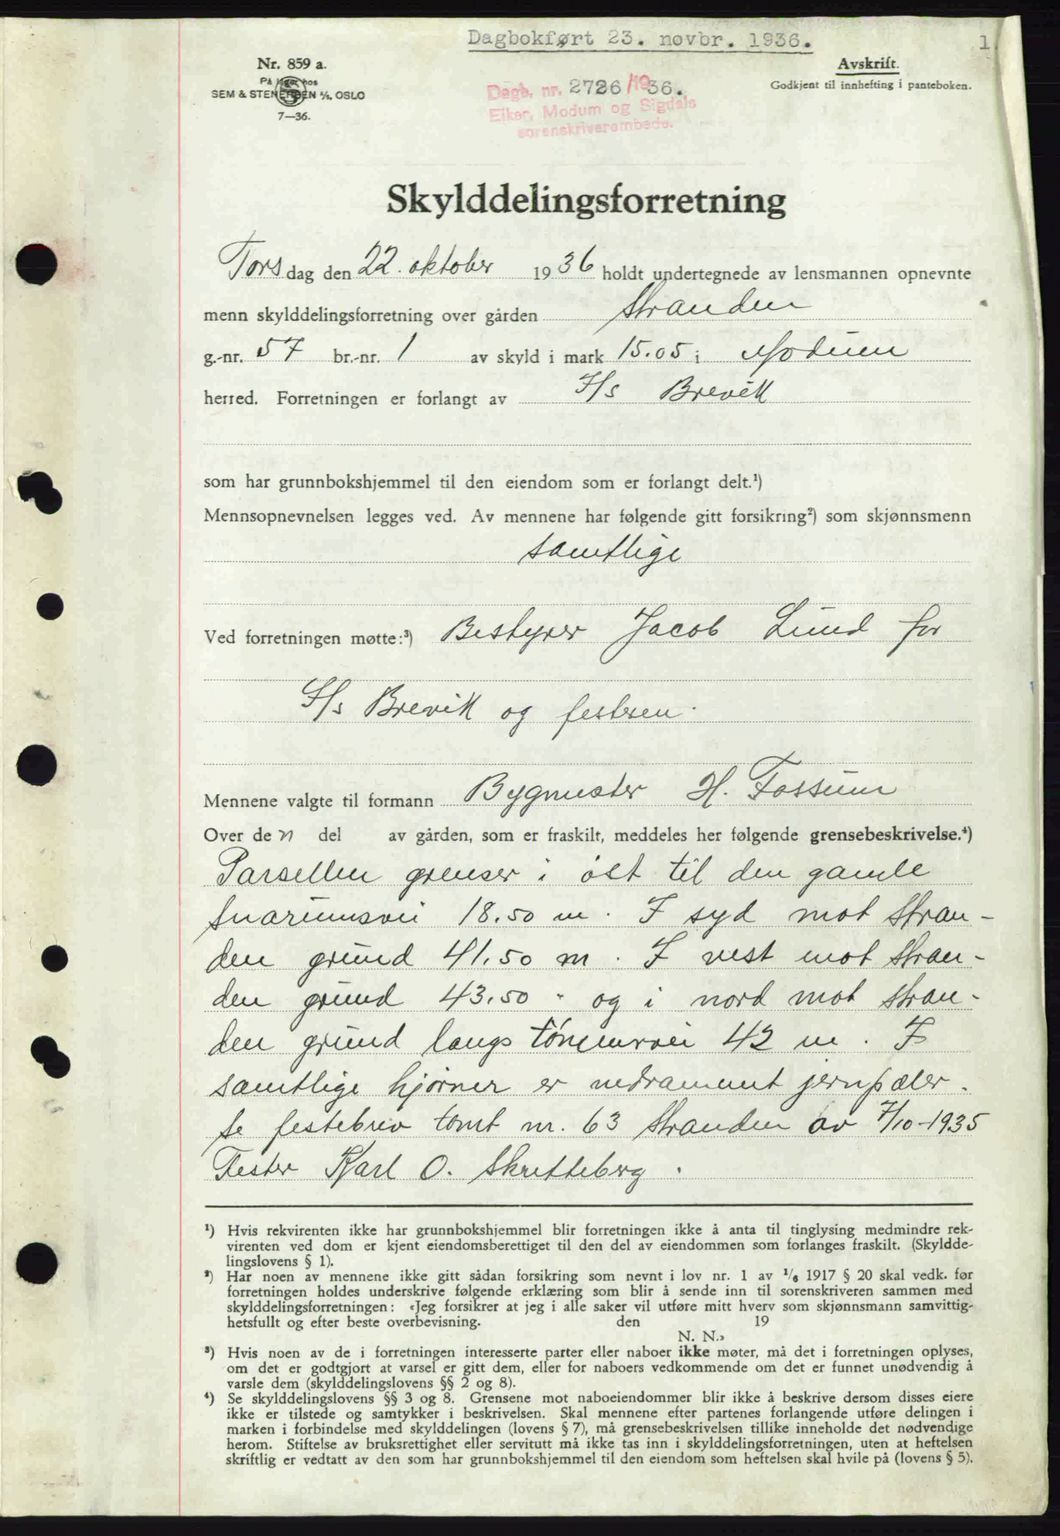 Dagbokført 23. novbr. 1936.
1
Nr. 859 a.
På lager hos
SEM & STENERSEN A/S, OSLO
7—36.
Avskrift.
Godkjent til innhefting i panteboken.
Dagb. nr. 2726/1936.
Eiker, Modum og Sigdals
sorenskriverembede.
Skylddelingsforretning
Torsdag den 22. oktober 1936 holdt undertegnede av lensmannen opnevnte
menn skylddelingsforretning over gården Stranden
g.-nr. 57 br.-nr. 1 av skyld i mark 15.05 i Modum
herred. Forretningen er forlangt av I/s Brevik
som har grunnbokshjemmel til den eiendom som er forlangt delt.¹)
Mennsopnevnelsen legges ved. Av mennene har følgende gitt forsikring²) som skjønnsmenn
samtlige
Ved forretningen møtte:³) Bestyrer Jacob Lund for
I/s Brevik og festeren.
Mennene valgte til formann Bygmester H. Fossum
Over den del av gården, som er fraskilt, meddeles her følgende grensebeskrivelse.⁴)
Parsellen grenser i øst til den gamle
Snarumsvei 18.50 m. I syd mot Stran-
den grund 41.50 m. I vest mot Stran-
den grund 43.50 " og i nord mot Stran-
den grund langs 42 m. I
samtlige hjørner er nedrammet jernpæler.
Se festebrev tomt nr. 63 Stranden av 7/10-1935
Fester Karl O. Skretteberg.
¹) Hvis rekvirenten ikke har grunnbokshjemmel blir forretningen ikke å anta til tinglysing medmindre rek-
virenten ved dom er kjent eiendomsberettiget til den del av eiendommen som forlanges fraskilt. (Skyldde-
lingslovens § 1).
²) Har noen av mennene ikke gitt sådan forsikring som nevnt i lov nr. 1 av 1/6 1917 § 20 skal vedk. før
forretningen holdes underskrive følgende erklæring som blir å sende inn til sorenskriveren sammen med
skylddelingsforretningen: «Jeg forsikrer at jeg i alle saker vil utføre mitt hverv som skjønnsmann samvittig-
hetsfullt og efter beste overbevisning. den 19
N. N.»
³) Hvis noen av de i forretningen interesserte parter eller naboer ikke møter, må det i forretningen oplyses,
om det er godtgjort at varsel er gitt dem, eller for naboers vedkommende om det er funnet unødvendig å
varsle dem (skylddelingslovens §§ 2 og 8).
⁴) Se skylddelingslovens §§ 3 og 8. Grensene mot naboeiendommer blir ikke å beskrive dersom disses eiere
ikke er tilstede og samtykker i beskrivelsen. Skal mennene efter partenes forlangende utføre delingen i
marken i forbindelse med skylddelingen (lovens § 7), må grensebeskrivelsen tillike inneholde det nødvendige
herom. Stiftelse av bruksrettighet eller servitutt må ikke tas inn i skylddelingsforretningen, uten at heftelsen
skriftlig er vedtatt av den som har grunnbokshjemmel til den eiendom som heftelsen skal hvile på (lovens § 5).